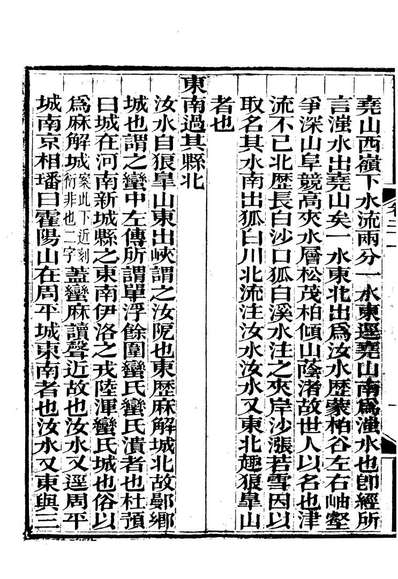 堯山西嶺下水流兩分一水東逕堯山南爲滍水也卽經所
言滍水出堯山矣一水東北出爲汝水歷蒙柏谷左右岫壑
爭深山阜競高夾水層松茂柏傾山蔭渚故世人以名也津
流不已北歷長白沙口狐白溪水注之夾岸沙漲若雪因以
取名其水南出狐白川北流注汝水汝水又東北趣狼臯山
者也
東南過其縣北
汝水自狼臯山東出峽謂之汝阸也東歷麻解城北故鄤鄕
城也謂之蠻中左傳所謂單浮餘圍蠻氏蠻氏潰者也杜預
曰城在河南新城縣之東南伊洛之戎陸渾蠻氏城也俗以
爲麻解城案此下近刻衍非也二字蓋蠻麻讀聲近故也汝水又逕周平
城南京相璠曰霍陽山在周平城東南者也汝水又東與三